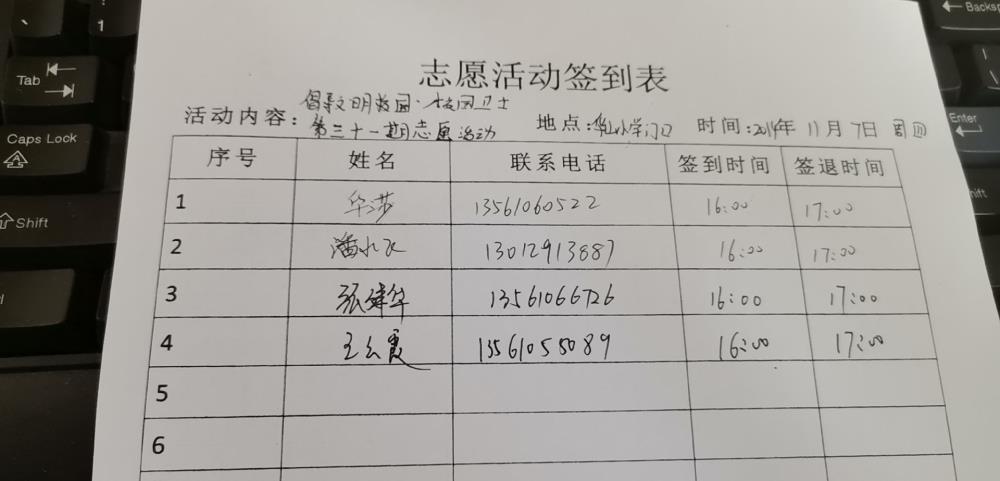 Tab
Caps Lock
Shift
1
Backsp
Enter
hift
志愿活动签到表
活动内容：倡导文明校园·校园卫士
第三十一期志愿活动
地点：华山小学门口 时间：2019年 11月 7日 周四
序号 姓名 联系电话 签到时间 签退时间
1 华莎 13561060522 16:00 17:00
2 潘小飞 13012913887 16:00 17:00
3 张建华 13561066726 16:00 17:00
4 王云霞 13561055089 16:00 17:00
5
6